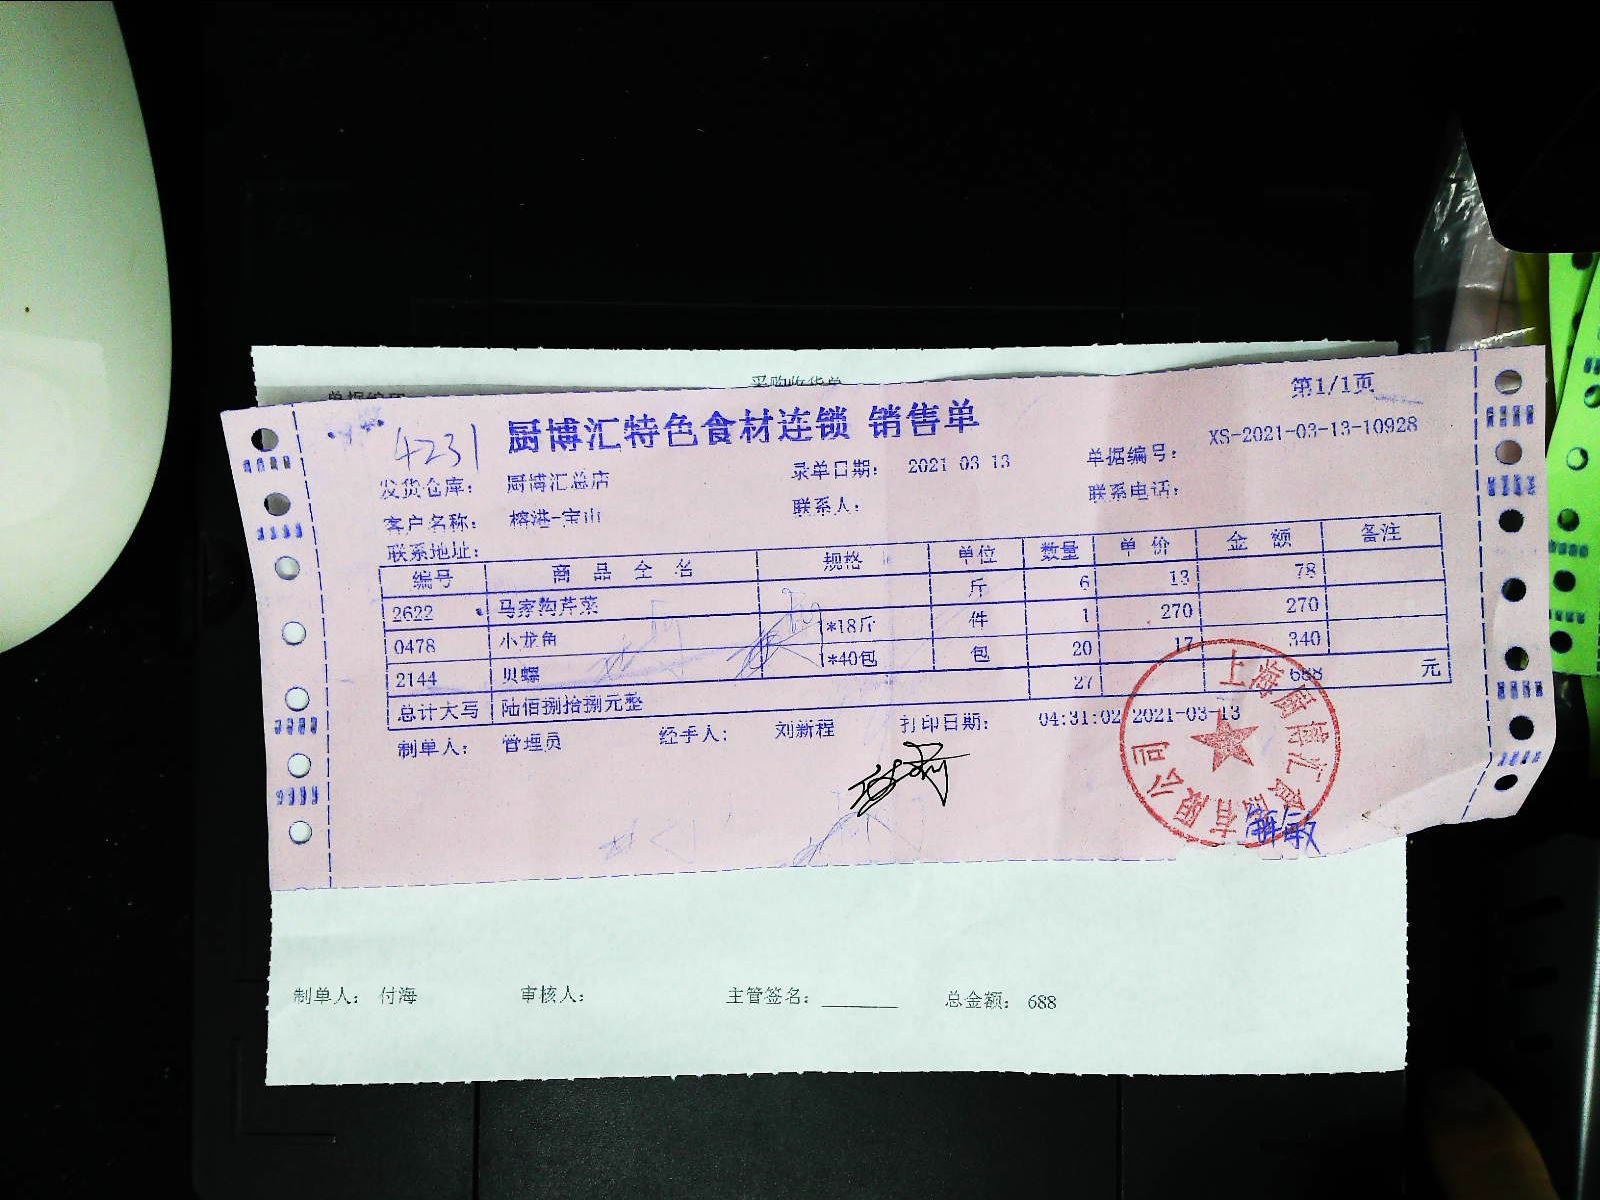 采购收货单
单据编号
第1/1页
4231 厨博汇特色食材连锁 销售单
发货仓库: 厨博汇总店 录单日期: 2021-03-13 单据编号: XS-2021-03-13-10928
客户名称: 榕港-宝山 联系人: 联系电话:
联系地址:
编号 商品全名 规格 单位 数量 单价 金额 备注
2622 马家沟芹菜 斤 6 13 78
0478 小龙鱼 1*18斤 件 1 270 270
2144 贝螺 1*40包 包 20 17 340
总计大写 陆佰捌拾捌元整 27 688 元
制单人: 管理员 经手人: 刘新程 打印日期: 04:31:02 2021-03-13
上海厨博汇食品有限公司
制单人: 付海 审核人: 主管签名: ________ 总金额: 688